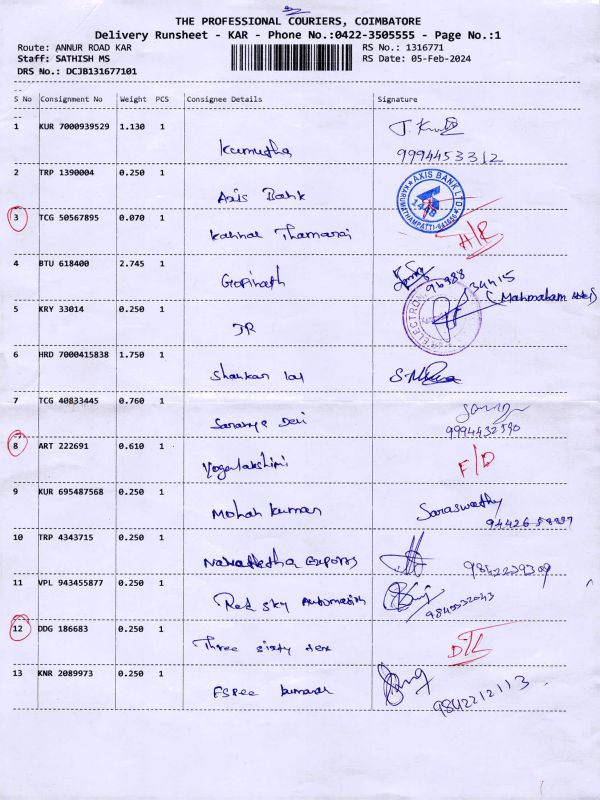 THE PROFESSIONAL COURIERS, COIMBATORE
Delivery Runsheet - KAR - Phone No.:0422-3505555 - Page No.:1
Route: ANNUR ROAD KAR RS No.: 1316771
Staff: SATHISH MS RS Date: 05-Feb-2024
DRS No.: DCJB131677101
S No Consignment No Weight PCS Consignee Details Signature
1 KUR 7000939529 1.130 1
Kumutha 9994453312
2 TRP 1390004 0.250 1
Axis Bank AXIS BANK LTD.
3 TCG 50567895 0.070 1
Kannal Thamarai H/R
4 BTU 618400 2.745 1
Gopinath 96988 34415
5 KRY 33014 0.250 1
JR
6 HRD 7000415838 1.750 1
Shankar lal
7 TCG 40833445 0.760 1
Saranya Devi 9994432590
8 ART 222691 0.610 1
Yogalakshimi F/D
9 KUR 695487568 0.250 1
Mohan Kumar Saraswathy
10 TRP 4343715 0.250 1
11 VPL 943455877 0.250 1
Red sky Automation
12 DDG 186683 0.250 1
Three sixty tex D/L
13 KNR 2089973 0.250 1
9842212113